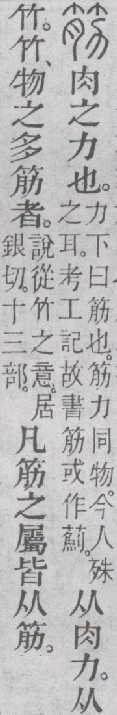 筋肉之力也。力下曰筋也。筋力同物。今人殊之耳。考工記故書筋或作薊。从肉力。从
竹。竹、物之多筋者。說從竹之意。居銀切。十三部。凡筋之屬皆从筋。